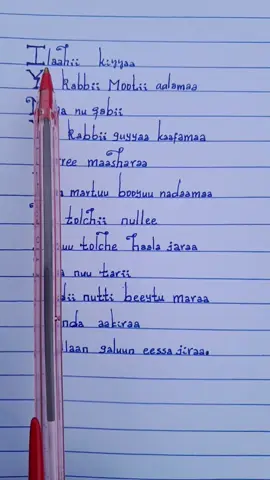 Ilaahii kiyyaa
Y rabbii Mootii aalamaa
N a nu qabii
rabbii guyyaa kaafamaa
ree maasharaa
a martuu booyuu nadaamaa
tolchii nullee
uu tolche haala jaraa
a nuu tarii
dii nutti beeytu maraa
nda aakiraa
laan galuun eessa jiraa.